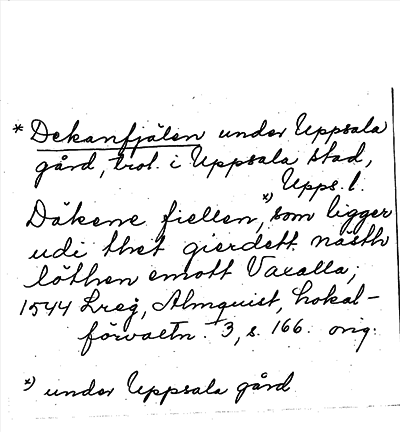 * Dekanfjälen under Uppsala
gård, trol. i Uppsala stad,
Upps. l.
Däkene fiellen, x) som ligger
udi thet gierdett nästh
löthen emott Vaxalla,
1544 Lreg, Almquist, Lokal-
förvaltn. 3, s. 166. orig.
x) under Uppsala gård